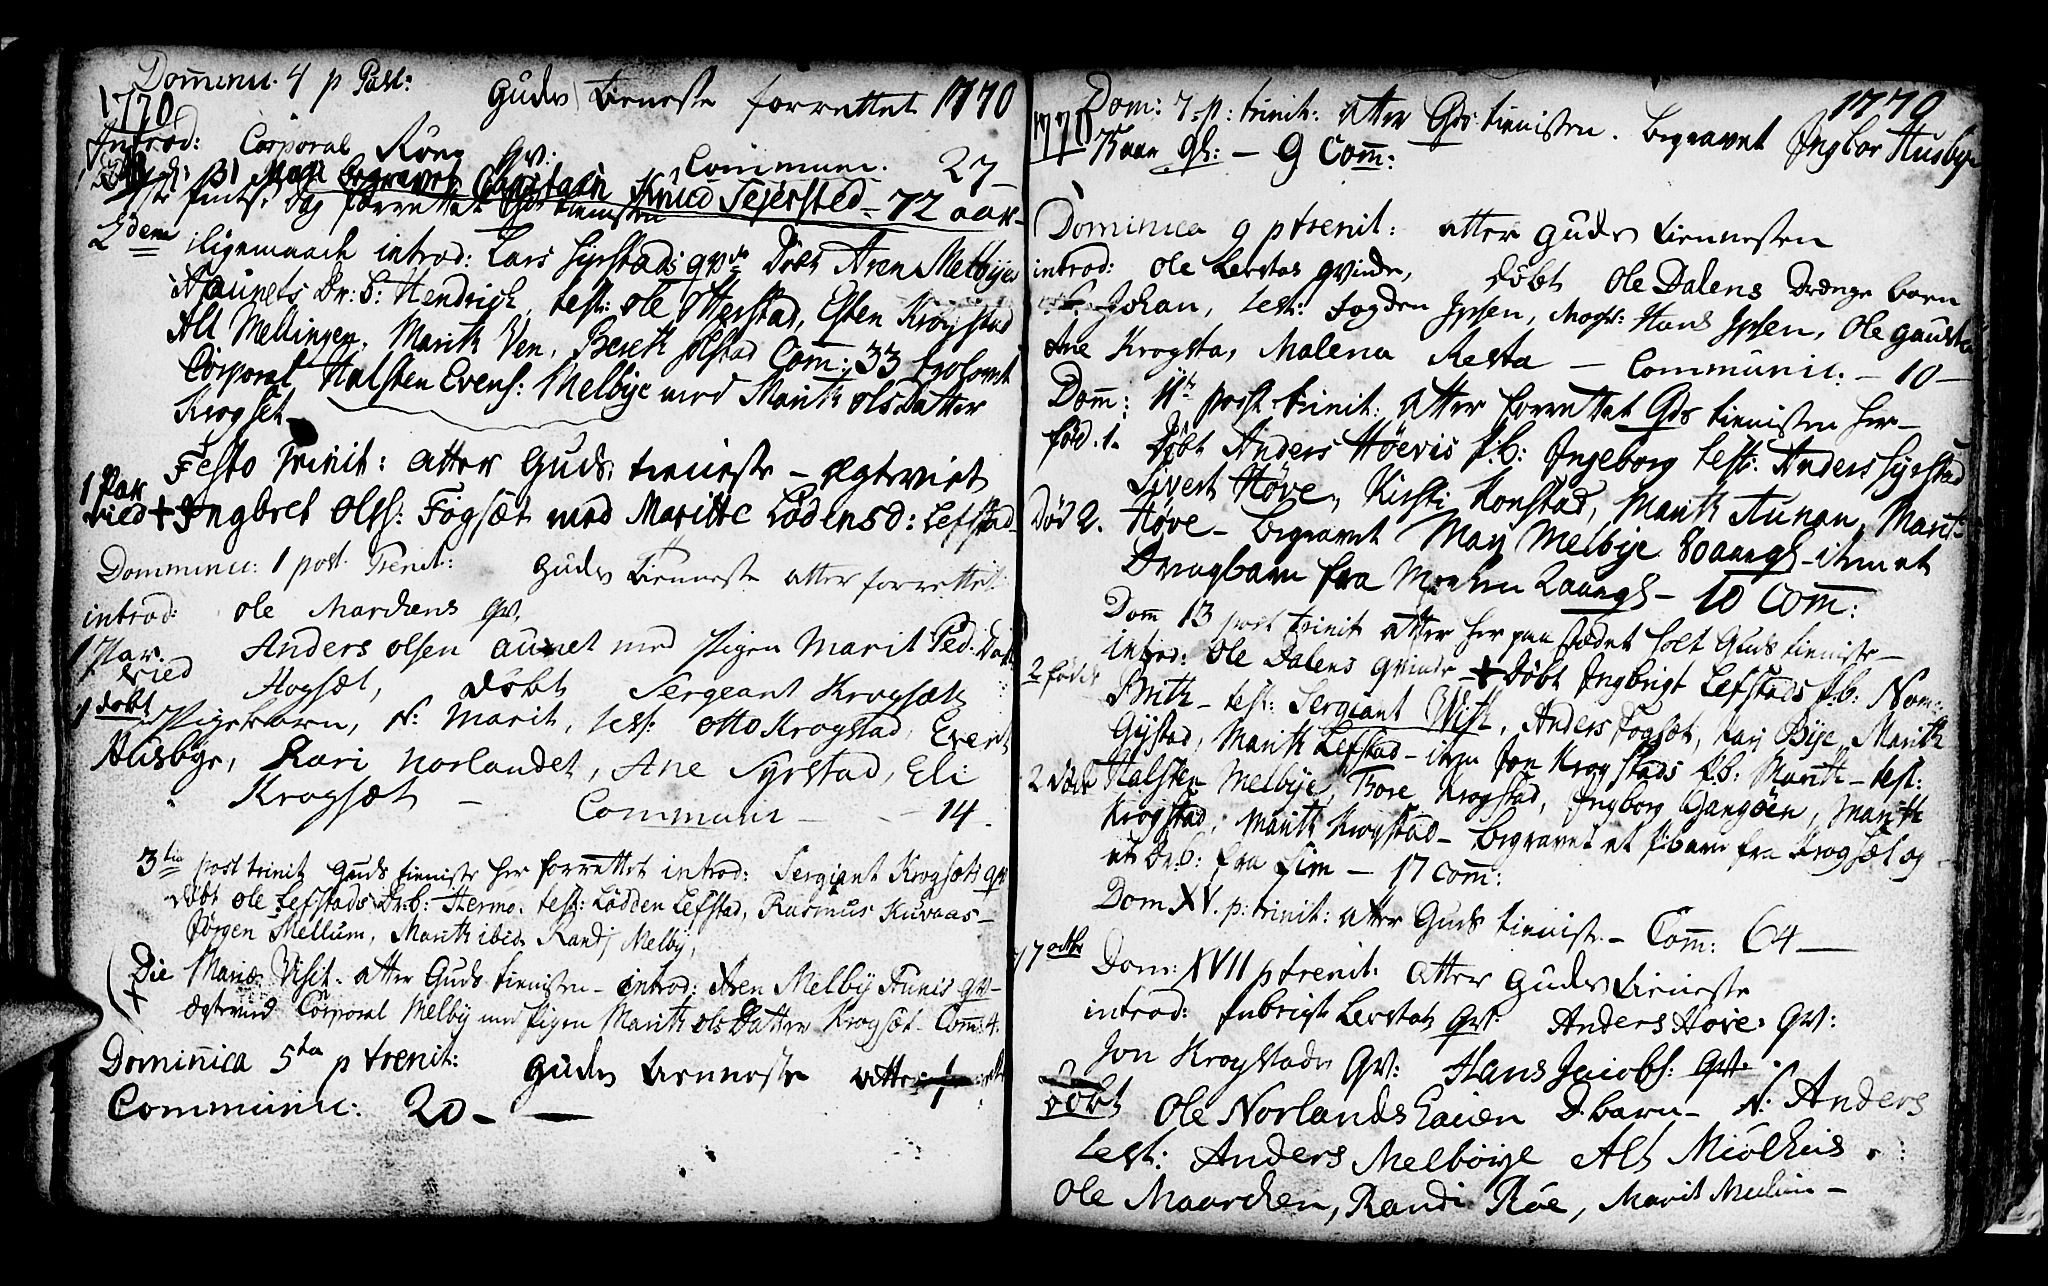 Dominic. 4 p Pasc:
1770 Gudes Tieneste forrettet 1770
Introd: Corporal Röng qv: Commun. 27
31 Maji begravet Capitain Knud Sejersted - 72 aar
1ste pintse dag forrettet Gds tienisten
2den ligemaade introd: Lars Syrstads qv. Döbt Aren Melbyes
Aaunets Dr: b: Hendrich, test: Ole Otterstad, Esten Krogstad
Alt Mellingen, Marith Ven, Bereth Solstad Com: 33 trolovet
Corporal Halsten Evens: Melbye med Marith olsDatter
Krogset
Festo Trinit: atter Guds tieniste - Egteviet
1 Par vied + Ingbret Olss: Fogsæt med Maritte Lödensd: Lefstad
Domminic: 1 post. Trenit: Gudes Tienneste atter forrettet
introd: ole Marchens qv.
1 Par. Anders olsen aunet med Pigen Marit Ped. Dat
vied Hogsæt, döbt Sergeant Krogsæts
1 döbt Pigebarn, N: Marit, test: Otto Krogstad, Evert
Husbye, Kari Norlandet, Ane Syrstad, Eli
Krogsæt - Communic - 14
3tia post trinit Guds tieniste her forrettet introd: Sergiant Krogsæts qv
döbt ole Lefstads Dr:b: Hermo. test: Lödden Lefstad, Rasmus Kuvaas -
Jörgen Mellum, Marith ibid. Randj Melby,
Die Mariæ Visit. atter Guds tienisten - introd: Aren Melby Trunis qv -
Egteviid Corporal Melby med pigen Marith ols Datter Krogset - Com: 4.
Dominica 5ta p trenit: Gudes Tienneste atter
Communic: 20 -
Dom: 7. p: trinit: atter Gds tienisten. begravet Ingbor Husbye 1770
1770 75 aar gl: - 9 Com:
Dominica 9 p trenit: atter Gudes Tiennesten
introd: Ole Lerstas qvinde, döbt Ole Dalens Drænge barn
Johan, test: fogden Ipsen, Mosr: Hans Ipsen, Ole Gaustad
Ane Krogsta, Malena Resta - Communic: - 10 -
Dom: 11te post trinit: atter forrettet Gds tienisten her -
föd. 1. Döbt Anders Höevis p.b: Ingeborg test: Anders Syrstad
Sivert Höve, Kirsti Konstad, Marith Aunan, Marit
Död 2. Höve - begravet Marj Melbye 80 aar gl - item et
Drengbarn fra Moehen 2 aar gl - 10 Com:
Dom 13 post trinit atter her paa stædet holt Guds tieniste -
introd: Ole Dalens qvinde - + Döbt Ingbrigt Lefstads p.b: Nom:
2 föde Brith - test: Sergiant Wist, Anders Fogsæt, Karj Bye, Marith
Gystad, Marith Lefstad - item Jon Krogstads p.b: Marith - test:
2 döde Halsten Melbye, Tore Krogstad, Ingborg Gangöen, Marith
Krogstad, Marith Krogstad - begravet et p.barn fra Krogsæt og
et Dr.b: fra Lim - 17 Com:
Dom XV. p: trinit: atter Guds tieniste - Com: 64 -
17 octbr Dom: XVII p trenit: atter Gudes Tieneste
introd: Inbrigt Lerstads qv: Anders Hove: qv:
Jon Krogstads qv: Hans Jacobs: qv:
döbt Ole Norlands Eaien D. barn - N: Anders
test: Anders Melböiye Alt Miölhus.
Ole Maarchen, Randi Röe, Marit Melum -